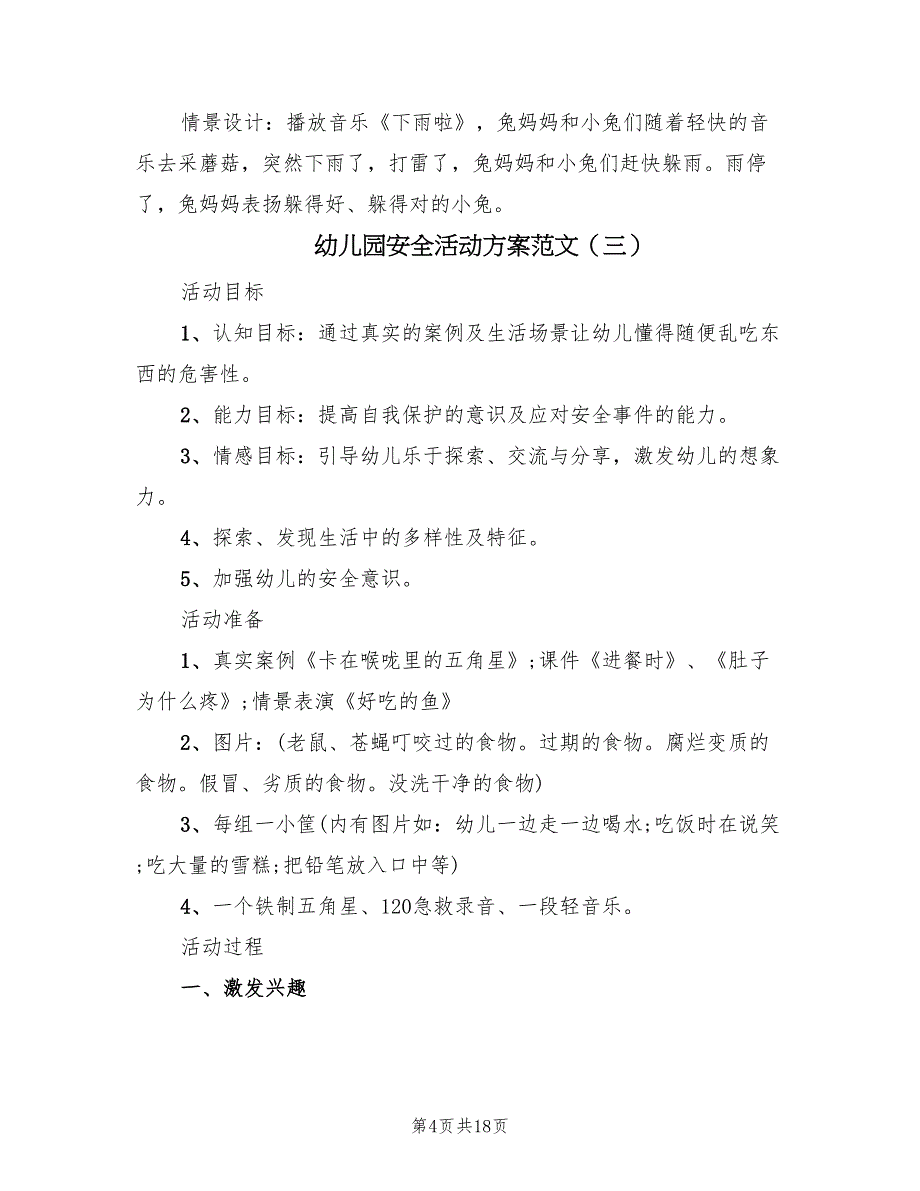 情景设计：播放音乐《下雨啦》，兔妈妈和小兔们随着轻快的音
乐去采蘑菇，突然下雨了，打雷了，兔妈妈和小兔们赶快躲雨。雨停
了，兔妈妈表扬躲得好、躲得对的小兔。
幼儿园安全活动方案范文（三）
活动目标
1、认知目标：通过真实的案例及生活场景让幼儿懂得随便乱吃东
西的危害性。
2、能力目标：提高自我保护的意识及应对安全事件的能力。
3、情感目标：引导幼儿乐于探索、交流与分享，激发幼儿的想象
力。
4、探索、发现生活中的多样性及特征。
5、加强幼儿的安全意识。
活动准备
1、真实案例《卡在喉咙里的五角星》;课件《进餐时》、《肚子
为什么疼》;情景表演《好吃的鱼》
2、图片：(老鼠、苍蝇叮咬过的食物。过期的食物。腐烂变质的
食物。假冒、劣质的食物。没洗干净的食物)
3、每组一小筐(内有图片如：幼儿一边走一边喝水;吃饭时在说笑
;吃大量的雪糕;把铅笔放入口中等)
4、一个铁制五角星、120急救录音、一段轻音乐。
活动过程
一、激发兴趣
第4页共18页